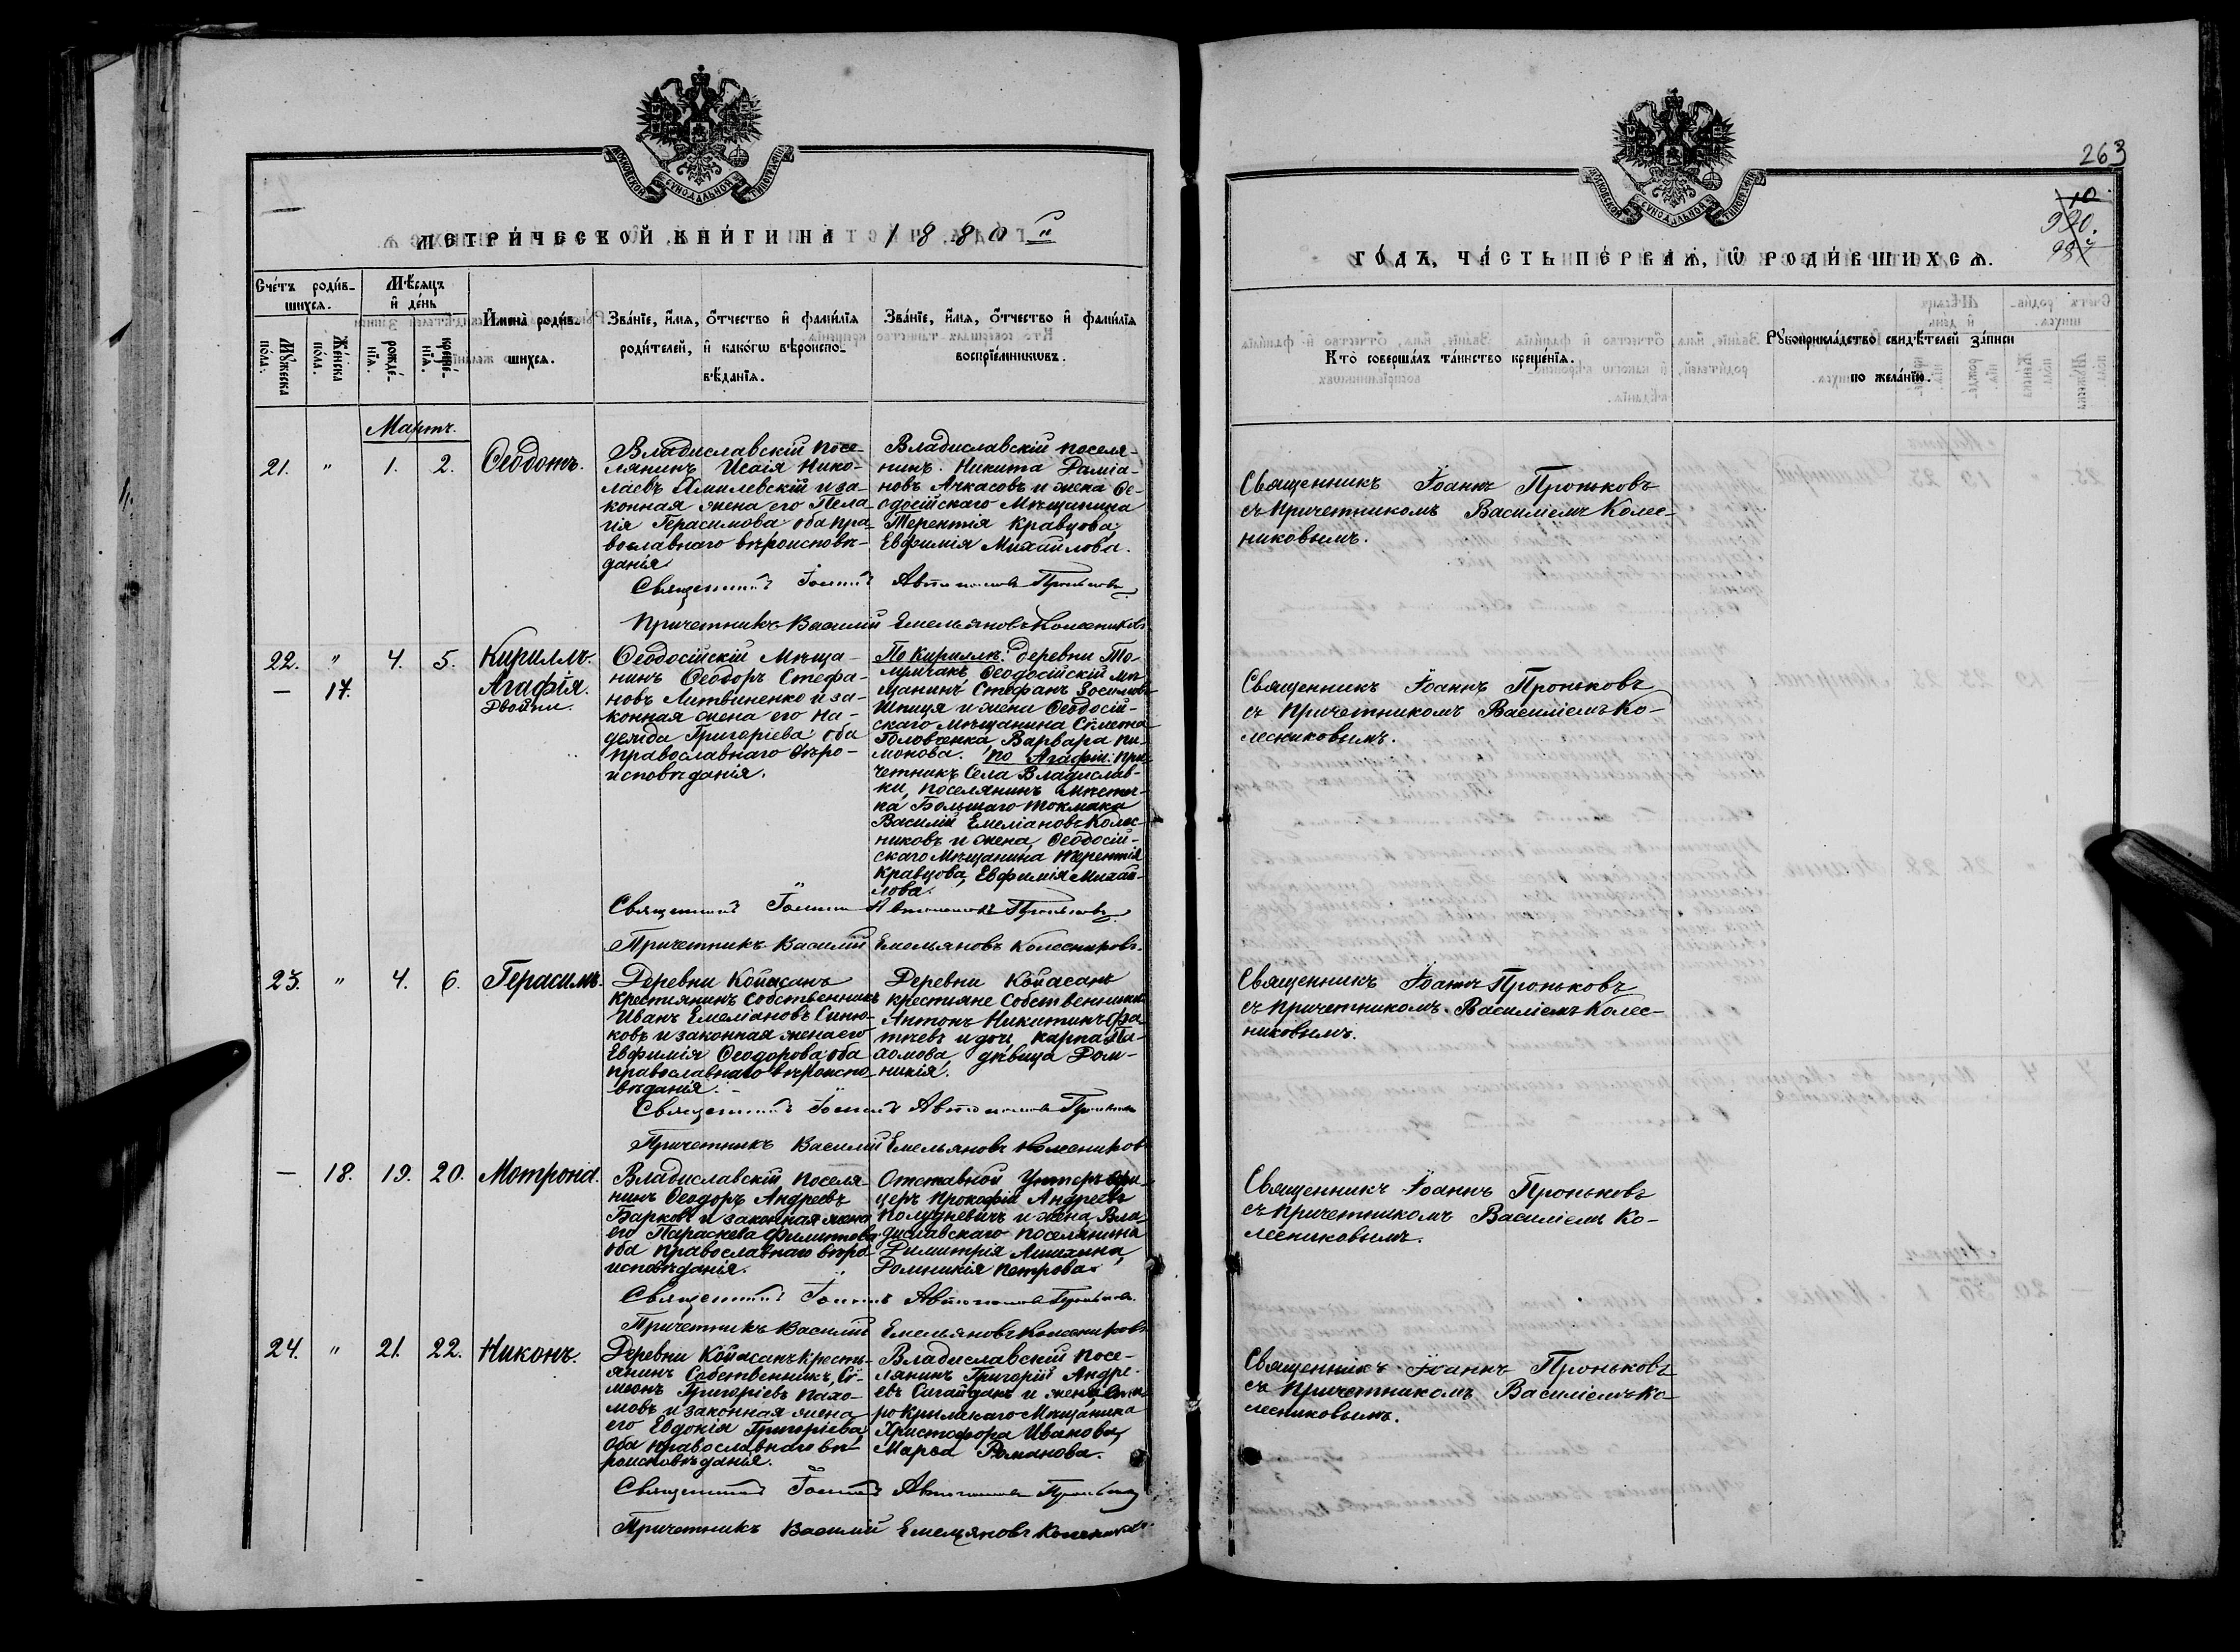 МОСКОВСКОЙ СѴНОДАЛЬНОЙ ТИПОГРАФІИ
МЕТРИ́ЧЕСКОЙ КНИ́ГИ НА 1880 й
Сче́тъ роди́в-
шихся.
Мѣ́сяцъ
и҆ де́нь
Мꙋ́жеска по́ла.
Же́нска по́ла.
рожде́-
нїѧ.
креще́-
нїѧ.
И҆мена̀ роди́в-
шихся.
Зва́нїе, и҆́мѧ, ѻ҆́тчество и҆ фами́лїѧ
роди́телей, и҆ како́гѡ вѣроиспо-
вѣ́данїѧ.
Зва́нїе, и҆́мѧ, ѻ҆́тчество и҆ фами́лїѧ
воспрїе́мникѡвъ.
Мартъ.
21. " 1. 2. Ѳеодотъ.
Владиславскій посе-
лянинъ Исаія Нико-
лаевъ Хмилевскій и за-
конная жена его Пела-
гія Герасимова оба пра-
вославнаго вѣроисповѣ-
данія
Владиславскій поселя-
нинъ Никита Даміа-
новъ Ачкасовъ и жена Ѳе-
одосійскаго Мѣщанина
Терентія Кравцова
Евфимія Михайлова.
Священникъ Іоаннъ Автономовъ Проньковъ
Причетникъ Василій Емельяновъ Колесниковъ
22. " 4. 5. Кириллъ.
— 17. Агафія.
Двойни.
Ѳеодосійскій Мѣща-
нинъ Ѳеодоръ Стефа-
новъ Литвиненко и за-
конная жена его На-
дежда Григоріева оба
православнаго вѣро-
исповѣданія.
По Кириллѣ: деревни То-
Ѳеодосійскій мѣ-
щанинъ Стефанъ
Шпиця и жена Ѳеодосій-
скаго мѣщанина
Головченка Варвара
по Агафіи: при-
четникъ Села Владислав-
ки, поселянинъ Мѣстеч-
ка Большаго-Токмака
Василій Емеліановъ Колес-
никовъ и жена Ѳеодосій-
скаго Мѣщанина Терентія
Кравцова, Евфимія Михай-
лова.
Священникъ Іоаннъ Автономовъ Проньковъ
Причетникъ Василій Емельяновъ Колесниковъ.
23. " 4. 6. Герасимъ.
Деревни Койасанъ
Крестьянинъ Собственникъ
Иванъ Емеліановъ Синю-
ковъ и законная жена его
Евфимія Ѳеодорова оба
православнаго вѣроиспо-
вѣданія.
Деревни Койасанъ
крестьяне Собственники
Антонъ Никитинъ Фа-
тѣевъ и дочь Карпа Па-
хомова дѣвица Дом-
никія.
Священникъ Іоаннъ Автономовъ Проньковъ
Причетникъ Василій Емельяновъ Колесниковъ
— 18. 19. 20. Матрона.
Владиславскій поселя-
нинъ Ѳеодоръ Андреевъ
Барковъ и законная жена
его Параскева Филиппова
оба православнаго вѣро-
исповѣданія.
Отставной Унтеръ-офи-
церъ Прокофій Андреевъ
Полудневичъ и жена Вла-
диславскаго поселянина
Димитрія Ашихина,
Домникія Петрова.
Священникъ Іоаннъ Автономовъ Проньковъ
Причетникъ Василій Емельяновъ Колесниковъ
24. " 21. 22. Никонъ.
Деревни Койасанъ Кресть-
янинъ Собственникъ, Сѵ-
меонъ Григоріевъ Пахо-
мовъ и законная жена
его Евдокія Григоріева,
оба православнаго вѣ-
роисповѣданія.
Владиславскій посе-
лянинъ Григорій Андре-
евъ Сагайдакъ и жена Ста-
рокрымскаго Мѣщанина
Христофора Иванова,
Марѳа Романова.
Священникъ Іоаннъ Автономовъ Проньковъ
Причетникъ Василій Емельяновъ Колесниковъ
263
МОСКОВСКОЙ СѴНОДАЛЬНОЙ ТИПОГРАФІИ
10
990.
ГО́ДЪ, ЧА́СТЬ ПЕ́РВАѦ, Ѡ҆ РОДИ́ВШИХСѦ.
Кто̀ соверша́лъ та́инство креще́нїѧ.
Рꙋкоприкла́дство свидѣ́телей за́писи
по жела́нїю.
Священникъ Іоаннъ Проньковъ
съ Причетникомъ Василіемъ Колес-
никовымъ.
Священникъ Іоаннъ Проньковъ
съ Причетникомъ Василіемъ Ко-
лесниковымъ.
Священникъ Іоаннъ Проньковъ
съ причетникомъ Василіемъ Колес-
никовымъ.
Священникъ Іоаннъ Проньковъ
съ причетникомъ Василіемъ Ко-
лесниковымъ.
Священникъ Іоаннъ Проньковъ
съ Причетникомъ Василіемъ Ко-
лесниковымъ.